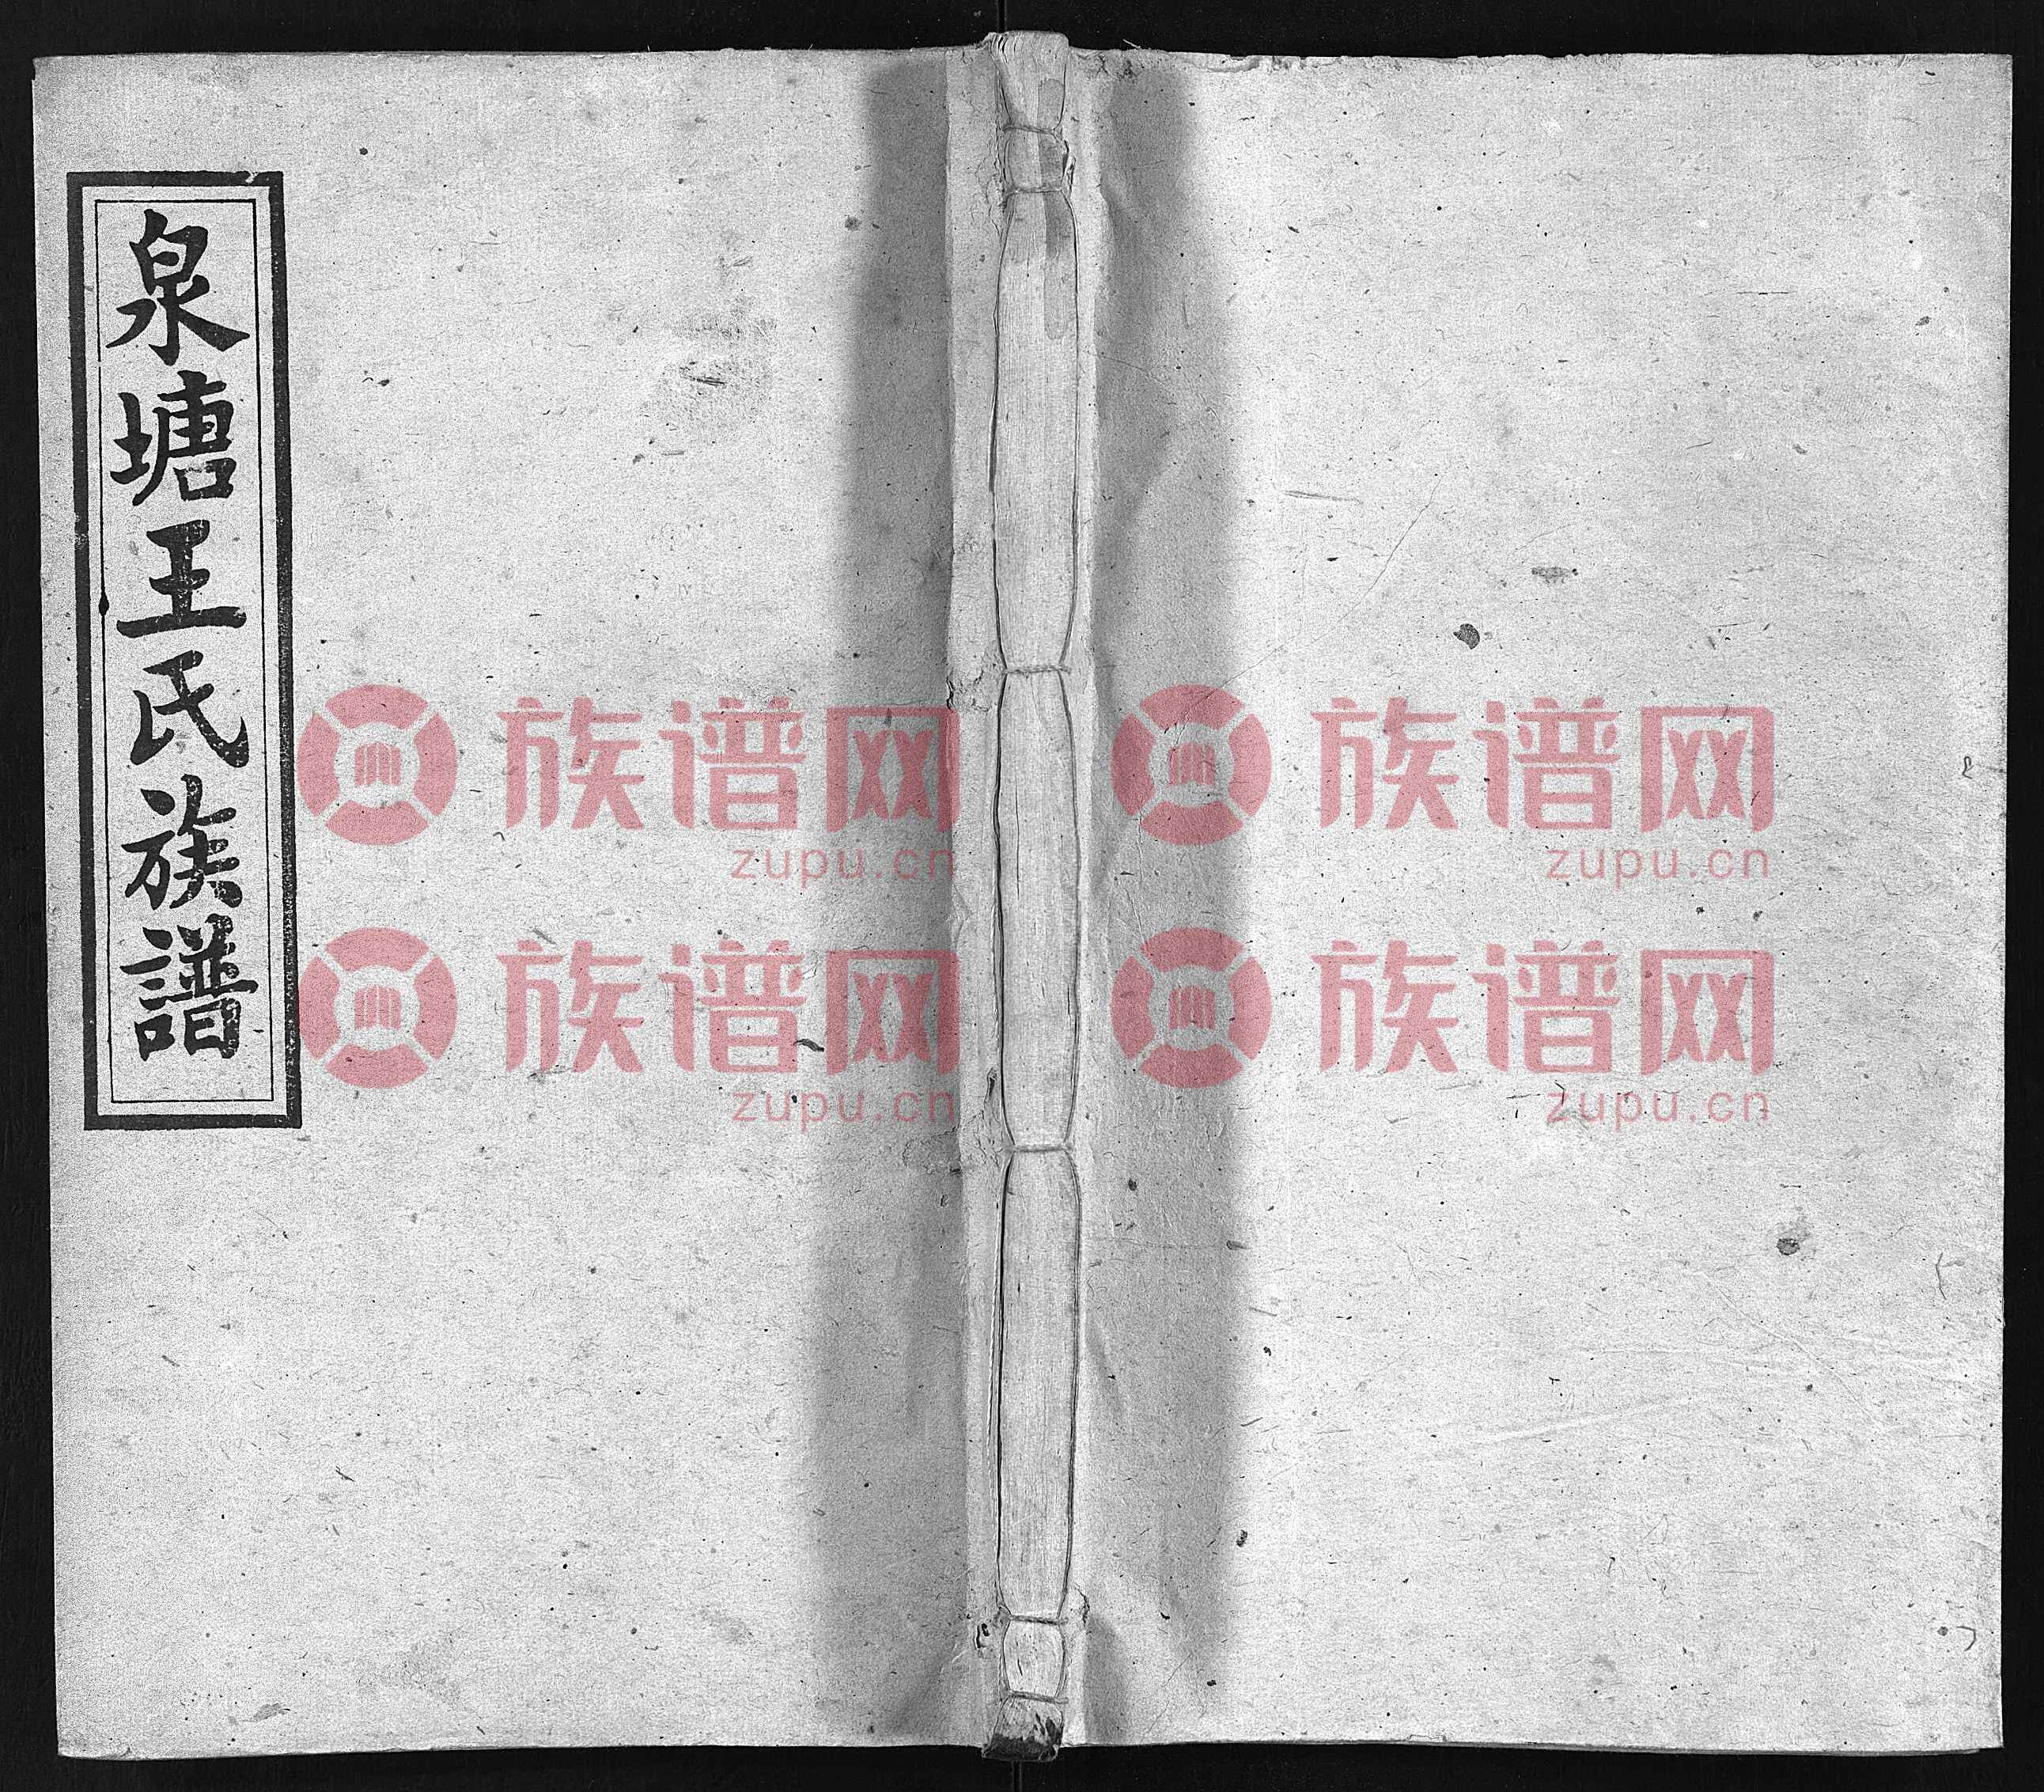 泉塘王氏族譜
族谱网 族谱网
zupu.cn zupu.cn
族谱网 族谱网
zupu.cn zupu.cn